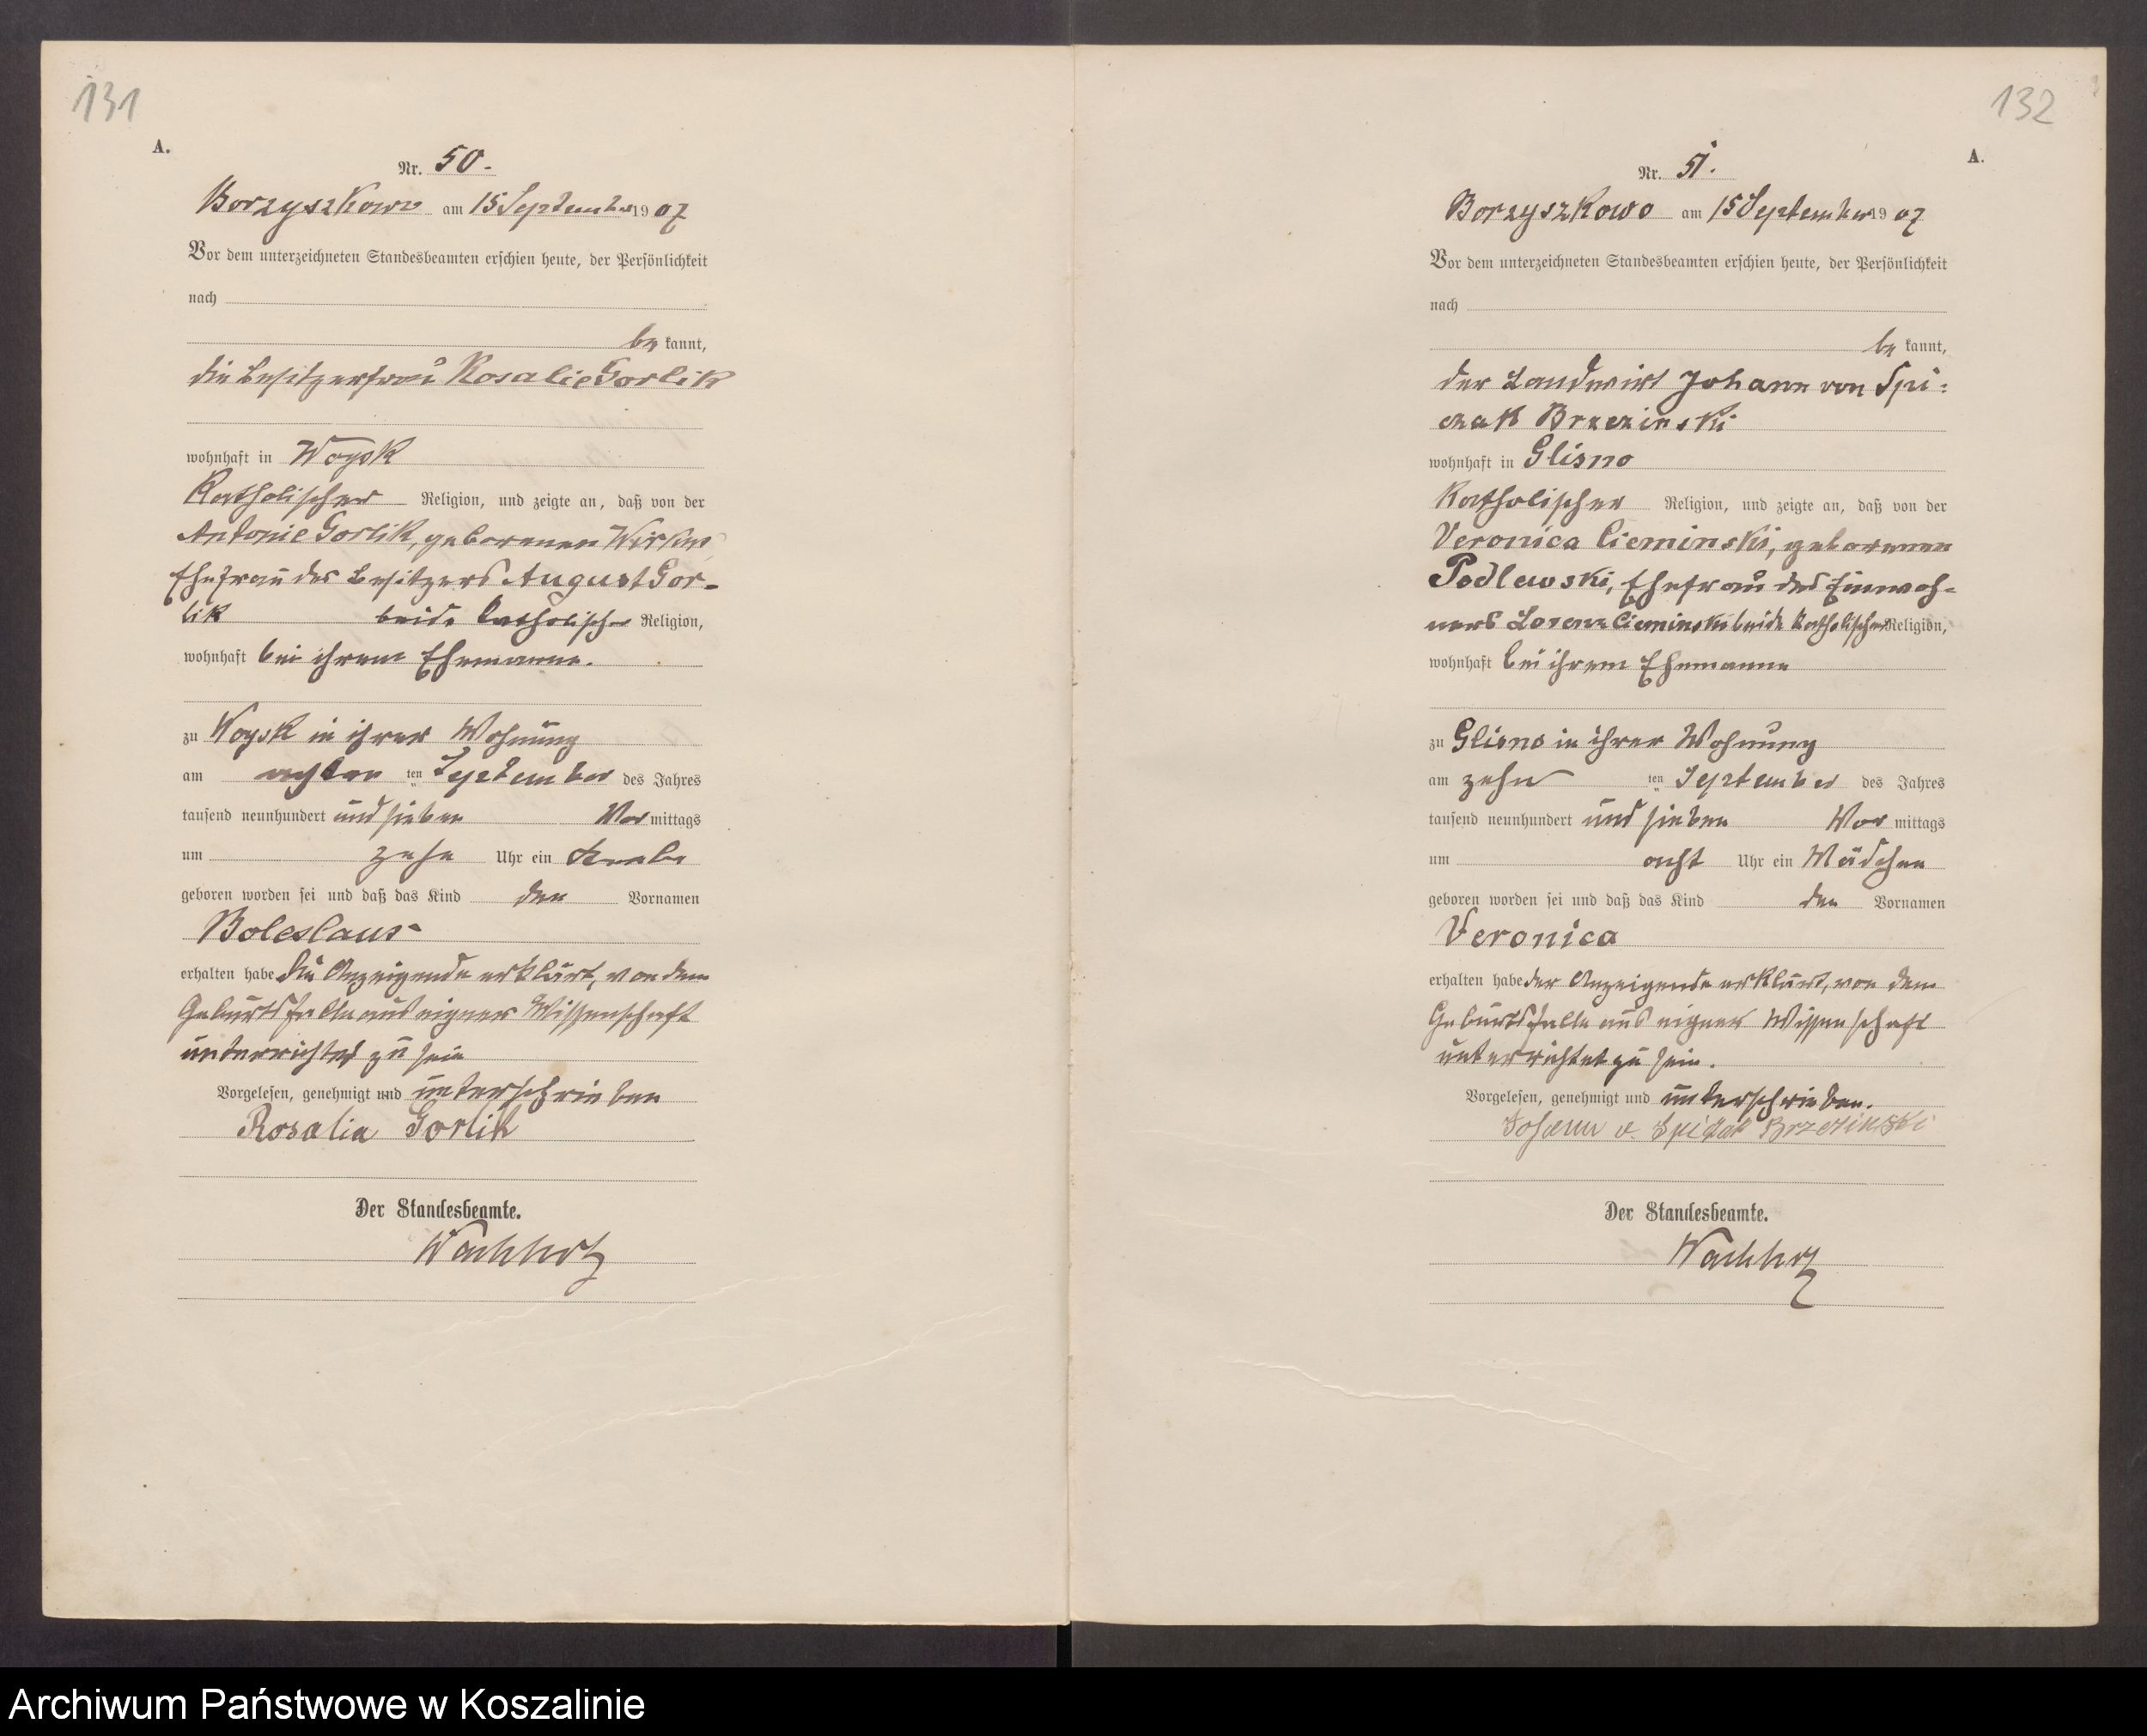 131
A.
Nr. 50.
Borzyszkowo am 15 September 1907
Vor dem unterzeichneten Standesbeamten erschien heute, der Persönlichkeit
nach
be kannt,
die Besitzerfrau Rosalie Gorlik
wohnhaft in Woysk
Katholischer Religion, und zeigte an, daß von der
Antonie Gorlik, geborenen
Ehefrau des Besitzers August Gor-
lik beide katholischer Religion,
wohnhaft bei ihrem Ehemanne.
zu Woysk in ihrer Wohnung
am achten ten September des Jahres
tausend neunhundert und sieben Vor mittags
um zehn Uhr ein Knabe
geboren worden sei und daß das Kind den Vornamen
Boleslaus
erhalten habe Die Anzeigende erklärt, von dem
Geburtsfalle aus eigner Wissenschaft
unterrichtet zu sein
Vorgelesen, genehmigt und unterschrieben
Rosalia Gorlik
Der Standesbeamte.
Wachholz
132
A.
Nr. 51.
Borzyszkowo am 15 September 1907
Vor dem unterzeichneten Standesbeamten erschien heute, der Persönlichkeit
nach
be kannt,
der Landwirt Johann von Spi-
czak Brzezinski
wohnhaft in Glisno
Katholischer Religion, und zeigte an, daß von der
Veronica Cieminski, geborenen
Podlewski, Ehefrau des Einwoh-
ners Lorenz Cieminski beide katholischer Religion,
wohnhaft bei ihrem Ehemanne
zu Glisno in ihrer Wohnung
am zehn ten September des Jahres
tausend neunhundert und sieben Vor mittags
um acht Uhr ein Mädchen
geboren worden sei und daß das Kind den Vornamen
Veronica
erhalten habe der Anzeigende erklärt, von dem
Geburtsfalle aus eigner Wissenschaft
unterrichtet zu sein.
Vorgelesen, genehmigt und unterschrieben.
Johann v. Spiczak Brzezinski
Der Standesbeamte.
Wachholz
Archiwum Państwowe w Koszalinie